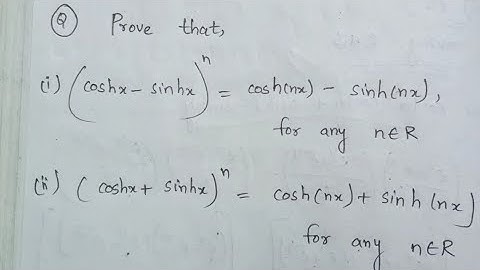 Q Prove that,
(i) (coshx - sinhx)^n = cosh(nx) - sinh(nx),
for any n∈R
(ii) (coshx + sinhx)^n = cosh(nx) + sinh(nx)
for any n∈R